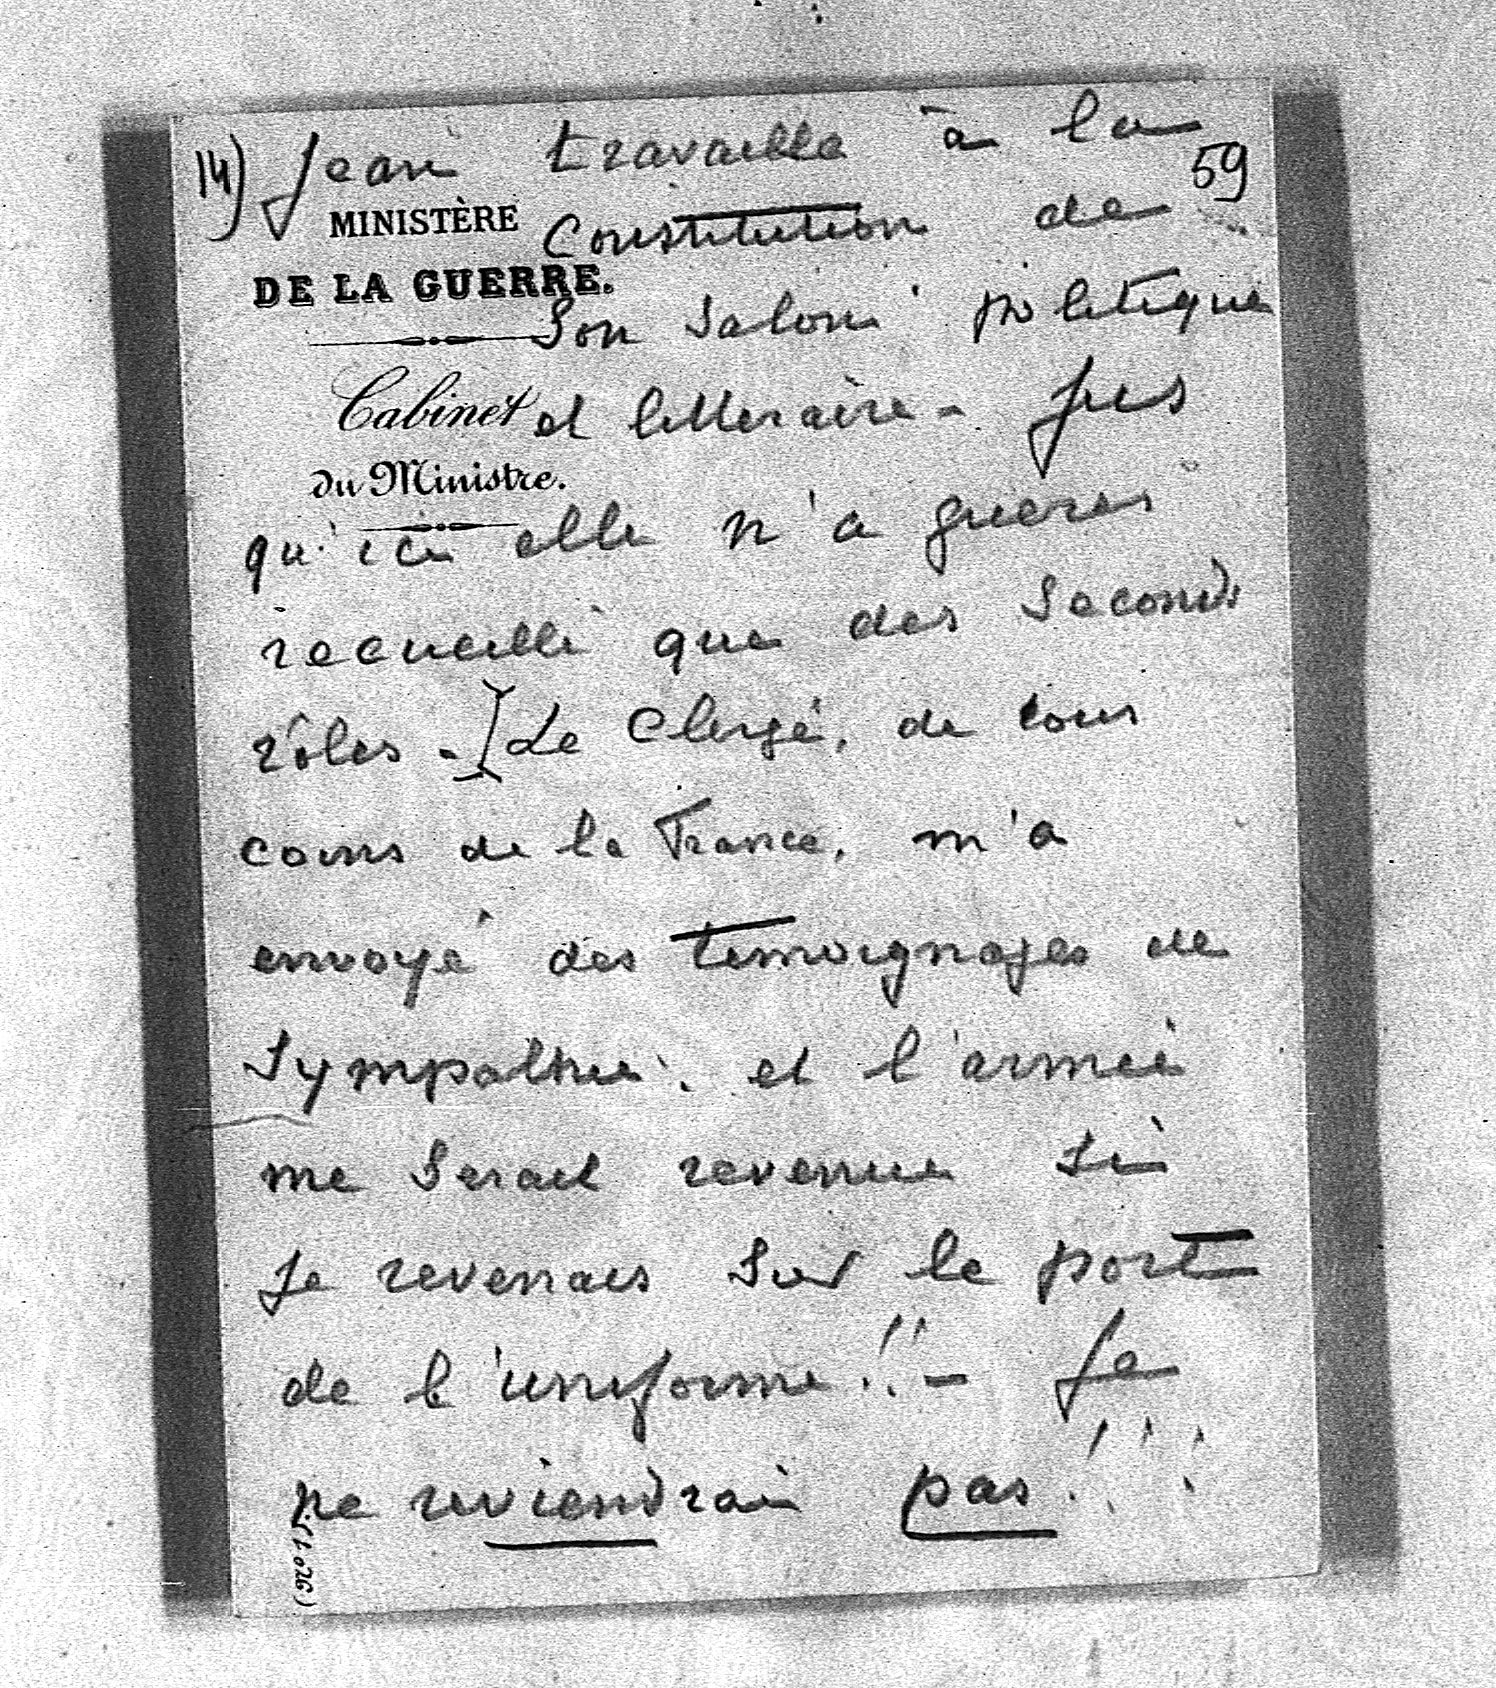 14) Jean travaille à la
59
MINISTÈRE
Constitution de
DE LA GUERRE.
Son Salon politique
Cabinet
et litteraire - jus
du Ministre.
qu'ici elle n'a gueres
recueilli que des Seconds
rôles - [Le Clergé, de tous
coins de la France, m'a
envoyé des temoignages de
Sympathie. et l'armée
me Serait revenue Si
Je revenais Sur le port
de l'uniforme!! - Je
ne reviendrai pas!!!
(1.026)